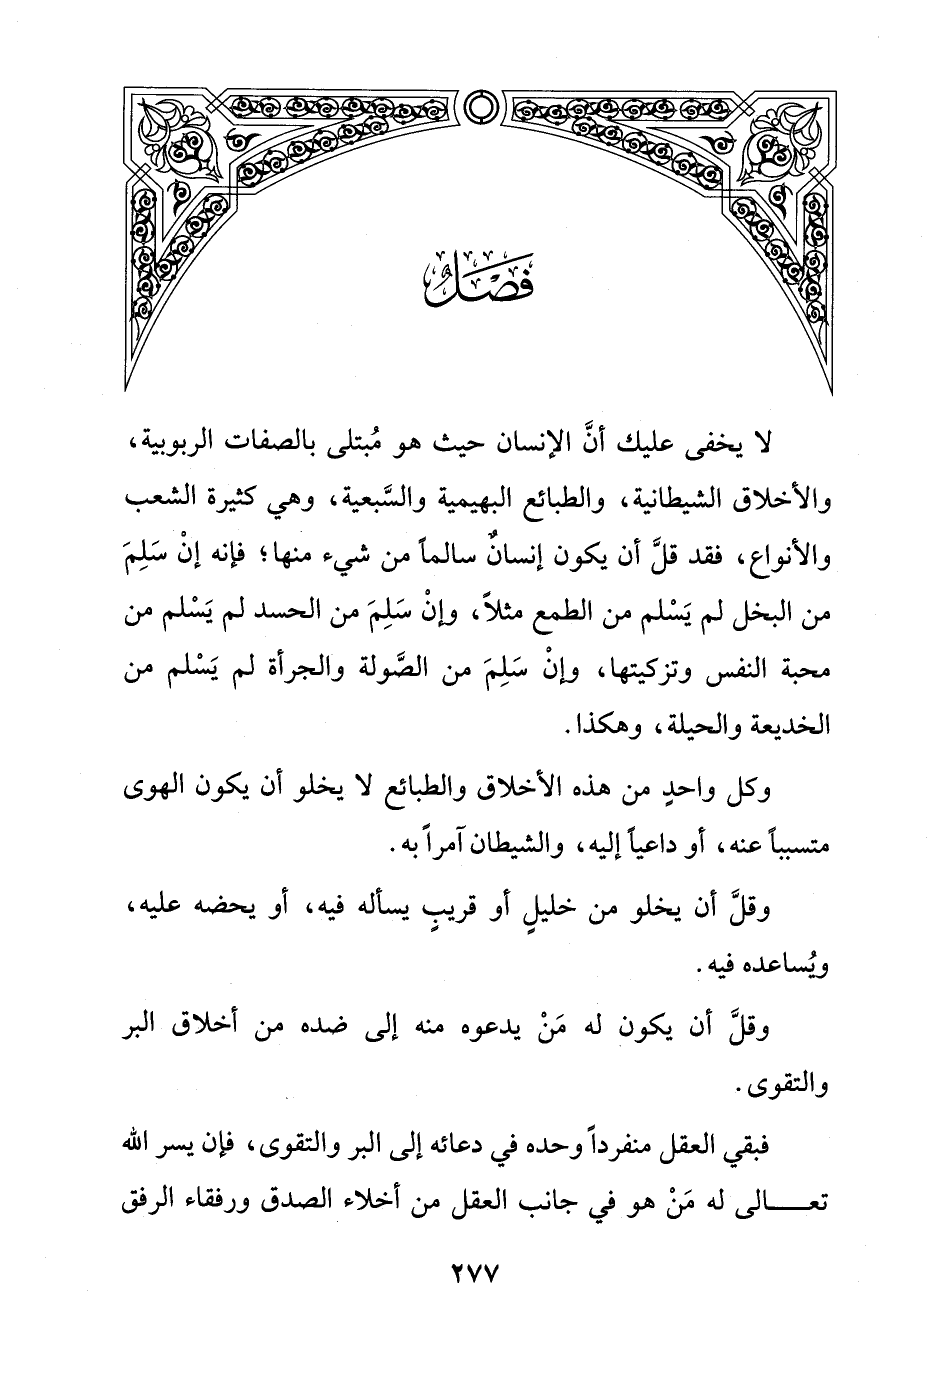 فَصْلٌ
لا يخفى عليك أنَّ الإنسان حيث هو مُبتلى بالصفات الربوبية،
والأخلاق الشيطانية، والطبائع البهيمية والسَّبعية، وهي كثيرة الشعب
والأنواع، فقد قلَّ أن يكون إنسانٌ سالماً من شيء منها؛ فإنه إنْ سَلِمَ
من البخل لم يَسْلم من الطمع مثلاً، وإنْ سَلِمَ من الحسد لم يَسْلم من
محبة النفس وتزكيتها، وإنْ سَلِمَ من الصَّولة والجرأة لم يَسْلم من
الخديعة والحيلة، وهكذا.
وكل واحدٍ من هذه الأخلاق والطبائع لا يخلو أن يكون الهوى
متسبباً عنه، أو داعياً إليه، والشيطان آمراً به.
وقلَّ أن يخلو من خليلٍ أو قريبٍ يسأله فيه، أو يحضه عليه،
ويُساعده فيه.
وقلَّ أن يكون له مَنْ يدعوه منه إلى ضده من أخلاق البر
والتقوى.
فبقي العقل منفرداً وحده في دعائه إلى البر والتقوى، فإن يسر الله
تعـــــالى له مَنْ هو في جانب العقل من أخلاء الصدق ورفقاء الرفق
٢٧٧